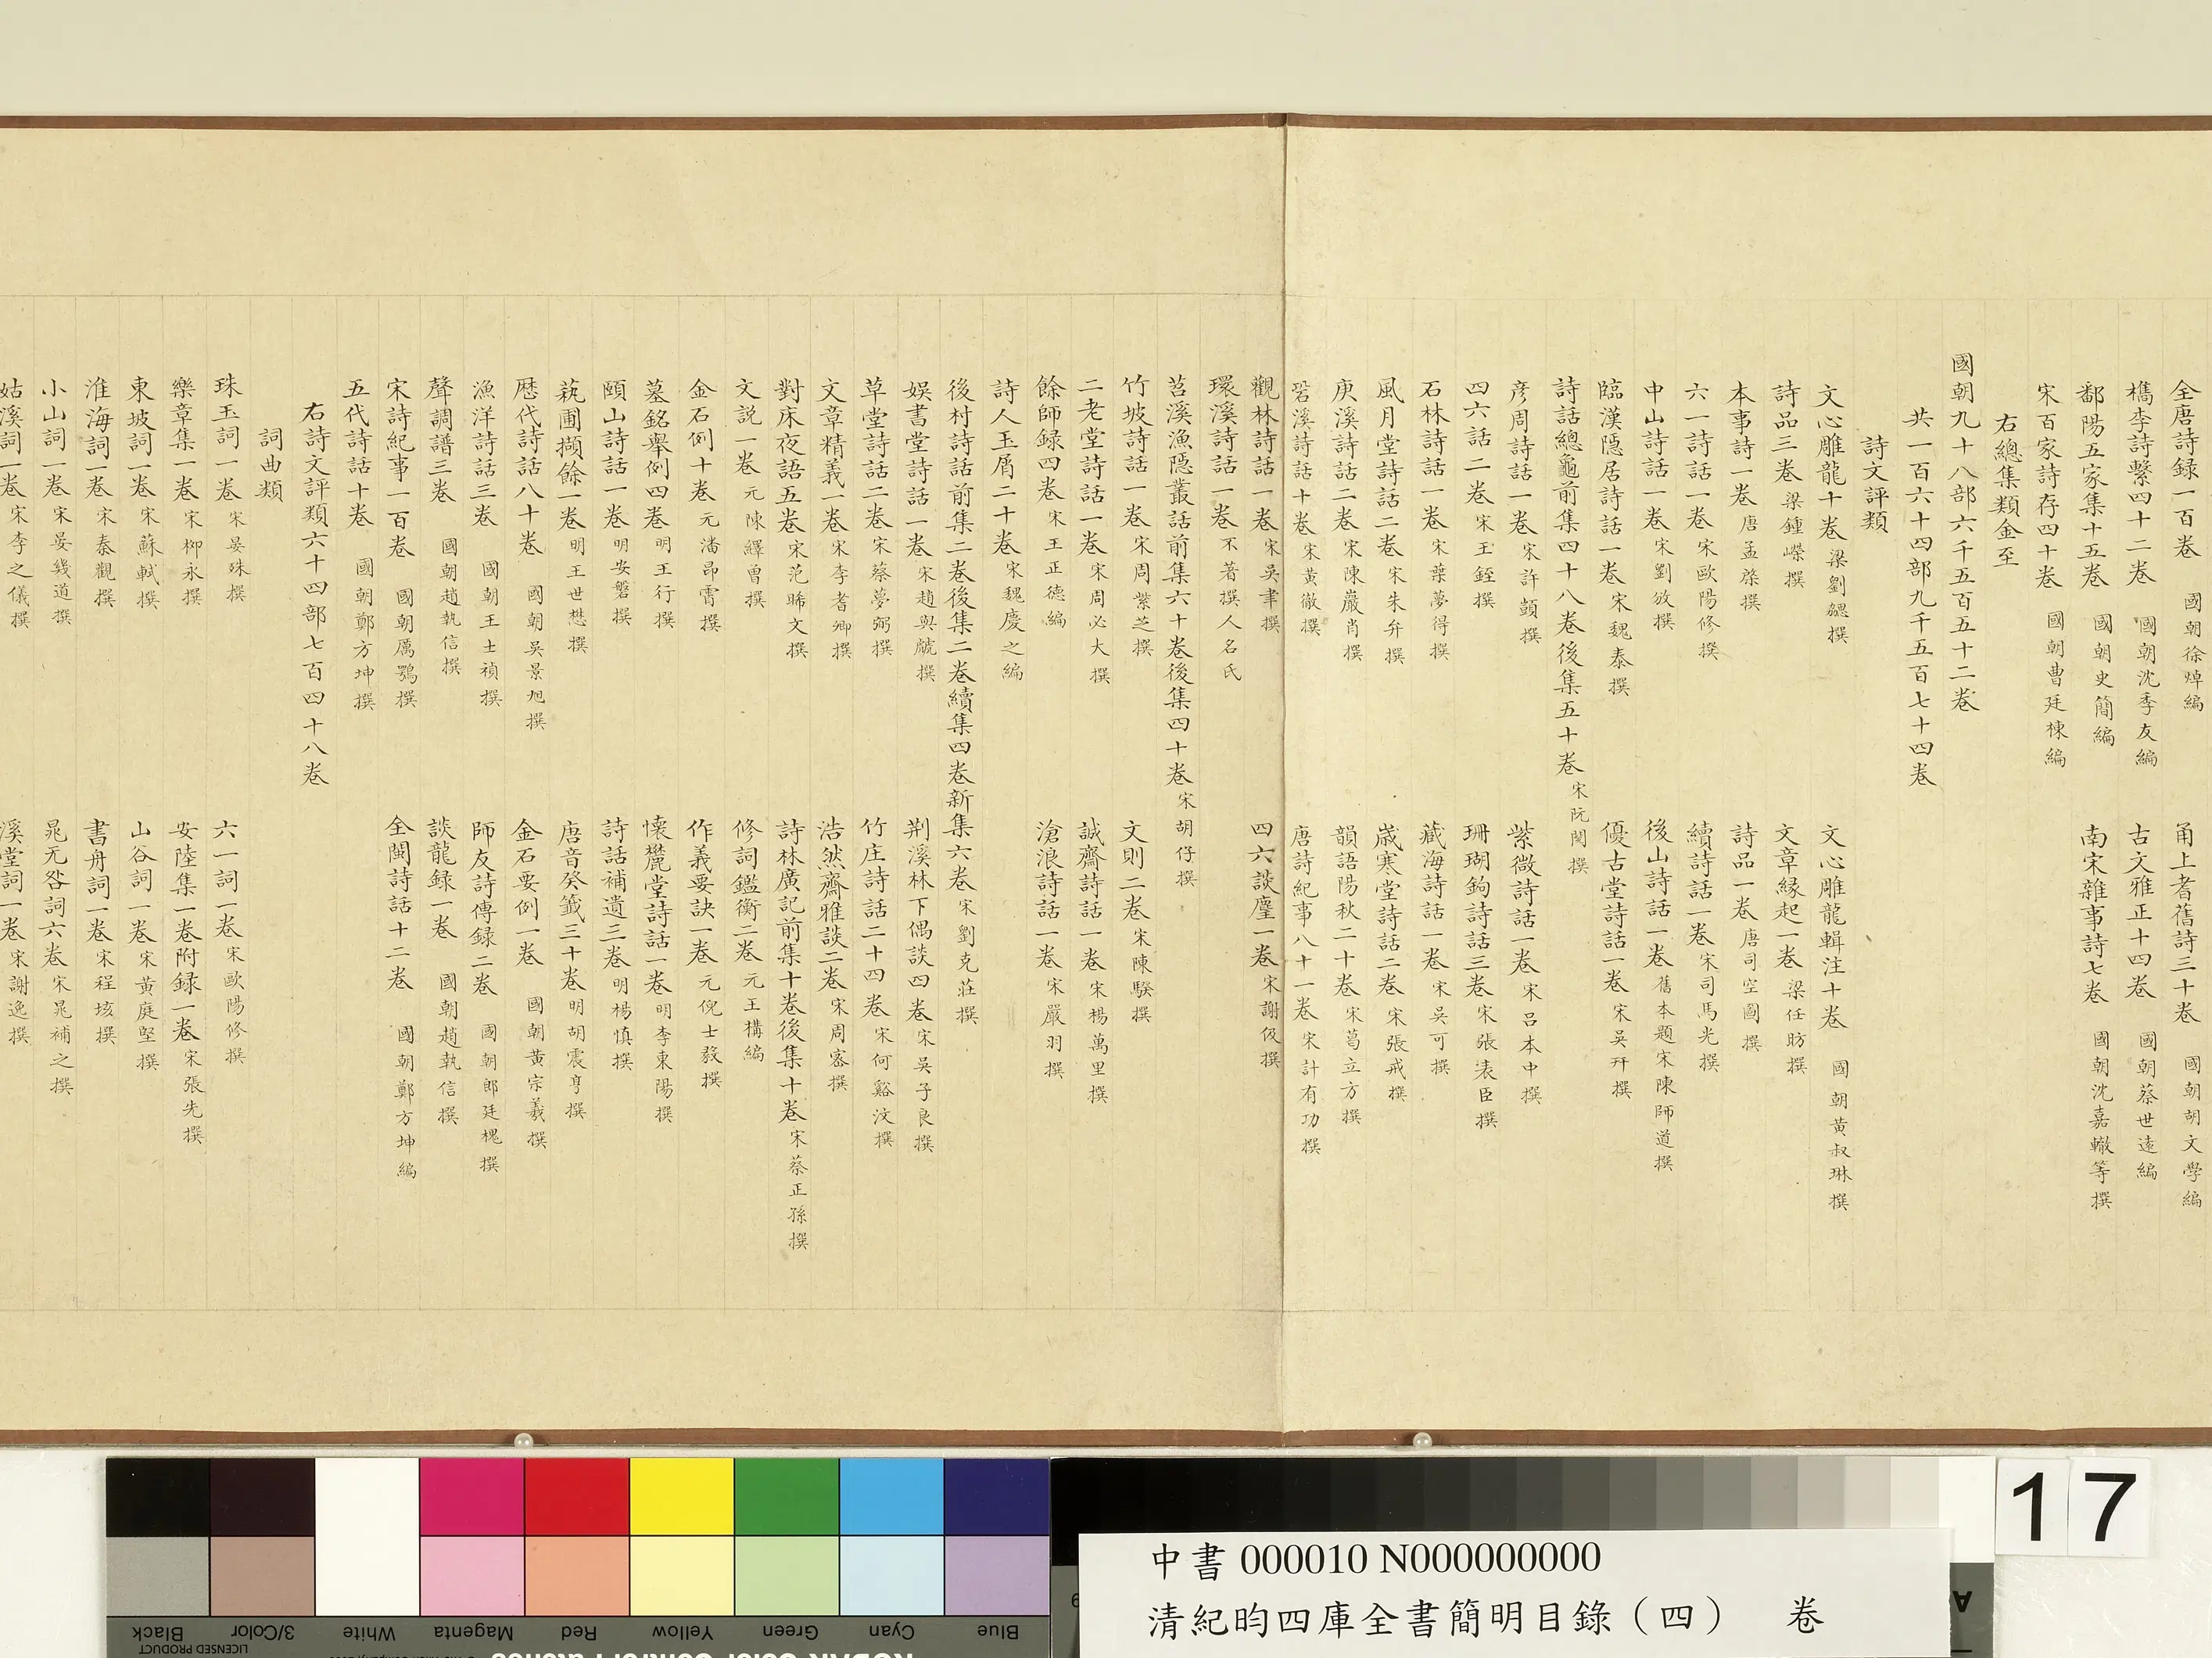 全唐詩録一百卷 國朝徐焯編 甬上耆舊詩三十卷 國朝胡文學編
檇李詩繫四十二卷 國朝沈季友編 古文雅正十四卷 國朝蔡世遠編
鄱陽五家集十五卷 國朝史簡編 南宋雜事詩七卷 國朝沈嘉轍等撰
宋百家詩存四十卷 國朝曹廷棟編
右總集類金至
國朝九十八部六千五百五十二卷
共一百六十四部九千五百七十四卷
詩文評類
文心雕龍十卷 梁劉勰撰 文心雕龍輯注十卷 國朝黃叔琳撰
詩品三卷 梁鍾嶸撰 文章緣起一卷 梁任昉撰
本事詩一卷 唐孟棨撰 詩品一卷 唐司空圖撰
六一詩話一卷 宋歐陽修撰 續詩話一卷 宋司馬光撰
中山詩話一卷 宋劉攽撰 後山詩話一卷 舊本題宋陳師道撰
臨漢隱居詩話一卷 宋魏泰撰 優古堂詩話一卷 宋吳幵撰
詩話總龜前集四十八卷後集五十卷 宋阮閱撰
彥周詩話一卷 宋許顗撰 紫微詩話一卷 宋呂本中撰
四六話二卷 宋王銍撰 珊瑚鉤詩話三卷 宋張表臣撰
石林詩話一卷 宋葉夢得撰 藏海詩話一卷 宋吳可撰
風月堂詩話二卷 宋朱弁撰 歲寒堂詩話二卷 宋張戒撰
庚溪詩話二卷 宋陳巖肖撰 韻語陽秋二十卷 宋葛立方撰
䂬溪詩話十卷 宋黃徹撰 唐詩紀事八十一卷 宋計有功撰
觀林詩話一卷 宋吳聿撰 四六談麈一卷 宋謝伋撰
環溪詩話一卷 不著撰人名氏
苕溪漁隱叢話前集六十卷後集四十卷 宋胡仔撰
竹坡詩話一卷 宋周紫芝撰 文則二卷 宋陳騤撰
二老堂詩話一卷 宋周必大撰 誠齋詩話一卷 宋楊萬里撰
餘師録四卷 宋王正德編 滄浪詩話一卷 宋嚴羽撰
詩人玉屑二十卷 宋魏慶之編
後村詩話前集二卷後集二卷續集四卷新集六卷 宋劉克莊撰
娛書堂詩話一卷 宋趙與虤撰 荆溪林下偶談四卷 宋吳子良撰
草堂詩話二卷 宋蔡夢弼撰 竹庄詩話二十四卷 宋何谿汶撰
文章精義一卷 宋李耆卿撰 浩然齋雅談二卷 宋周密撰
對床夜語五卷 宋范晞文撰 詩林廣記前集十卷後集十卷 宋蔡正孫撰
文說一卷 元陳繹曾撰 修詞鑑衡二卷 元王構編
金石例十卷 元潘昂霄撰 作義要訣一卷 元倪士毅撰
墓銘舉例四卷 明王行撰 懷麓堂詩話一卷 明李東陽撰
頤山詩話一卷 明安磐撰 詩話補遺三卷 明楊慎撰
蓺圃擷餘一卷 明王世懋撰 唐音癸籤三十卷 明胡震亨撰
歷代詩話八十卷 國朝吳景旭撰 金石要例一卷 國朝黃宗羲撰
漁洋詩話三卷 國朝王士禎撰 師友詩傳録二卷 國朝郎廷槐撰
聲調譜三卷 國朝趙執信撰 談龍録一卷 國朝趙執信撰
宋詩紀事一百卷 國朝厲鶚撰 全閩詩話十二卷 國朝鄭方坤編
五代詩話十卷 國朝鄭方坤撰
右詩文評類六十四部七百四十八卷
詞曲類
珠玉詞一卷 宋晏殊撰 六一詞一卷 宋歐陽修撰
樂章集一卷 宋柳永撰 安陸集一卷附録一卷 宋張先撰
東坡詞一卷 宋蘇軾撰 山谷詞一卷 宋黃庭堅撰
淮海詞一卷 宋秦觀撰 書舟詞一卷 宋程垓撰
小山詞一卷 宋晏幾道撰 晁无咎詞六卷 宋晁補之撰
姑溪詞一卷 宋李之儀撰 溪堂詞一卷 宋謝逸撰
17
中書 000010 N000000000
清紀昀四庫全書簡明目錄（四） 卷
Black 3/Color White Magenta Red Yellow Green Cyan Blue
LICENSED PRODUCT